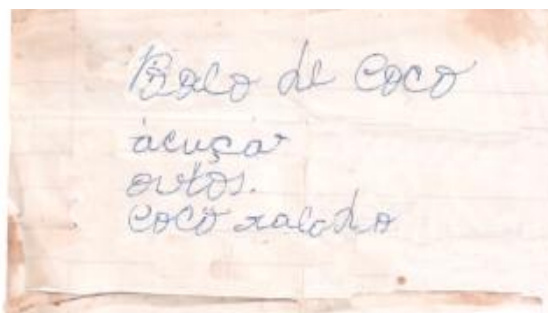 Bolo de coco
acuçar
ovtos.
coco ralado